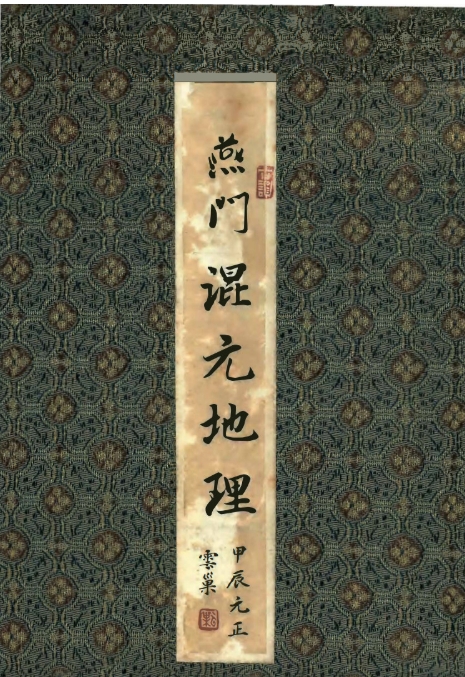 燕門混元地理
甲辰元正
雲巢